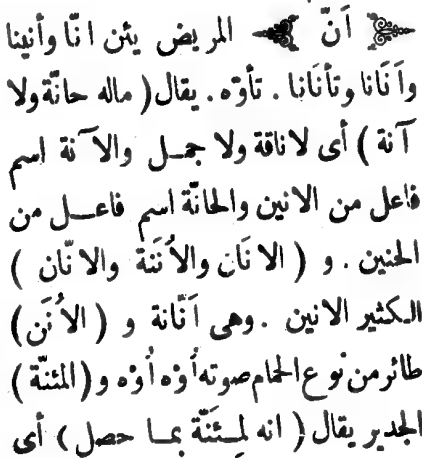 ﴿ أنّ ﴾ المريض يئن انّا وأنينا
وآنانا وتأنانا . تأوّه . يقال ( ماله حانّة ولا
آنة ) أى لا ناقة ولا جمل والآنة اسم
فاعل من الانين والحانّة اسم فاعل من
الحنين . و ( الانّان والأُنَنَة والانّان )
الكثير الانين . وهى أنّانة و ( الأُنَن )
طائر من نوع الحمام صوته أُوْه أُوْه و ( المئنّة )
الجدير يقال ( انه لمئنّة بما حصل ) أى